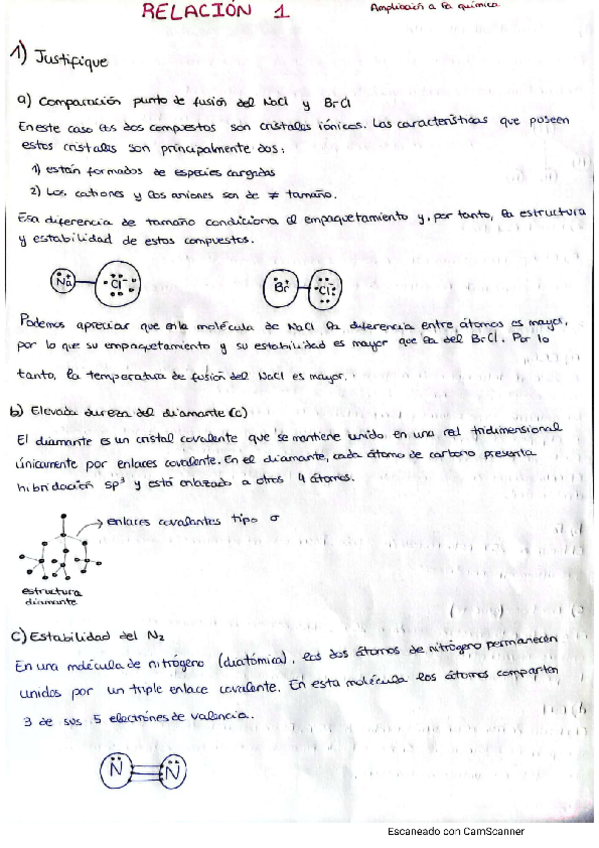 RELACIÓN 1
Ampliación a la química
1) Justifique
a) Comparación punto de fusión del NaCl y BrCl
En este caso los dos compuestos son cristales iónicos. Las características que poseen
estos cristales son principalmente dos:
1) están formados de especies cargadas
2) Los cationes y los aniones son de ≠ tamaño.
Esa diferencia de tamaño condiciona el empaquetamiento y, por tanto, la estructura
y estabilidad de estos compuestos.
Na Cl Br Cl
Podemos apreciar que en la molécula de NaCl la diferencia entre átomos es mayor,
por lo que su empaquetamiento y su estabilidad es mayor que la del BrCl. Por lo
tanto, la temperatura de fusión del NaCl es mayor.
b) Elevada dureza del diamante (C)
El diamante es un cristal covalente que se mantiene unido en una red tridimensional
únicamente por enlaces covalente. En el diamante, cada átomo de carbono presenta
hibridación sp³ y está enlazado a otros 4 átomos.
enlaces covalentes tipo σ
estructura
diamante
C) Estabilidad del N₂
En una molécula de nitrógeno (diatómica), los dos átomos de nitrógeno permanecen
unidos por un triple enlace covalente. En esta molécula los átomos comparten
3 de sus 5 electrones de valencia.
N N
Escaneado con CamScanner